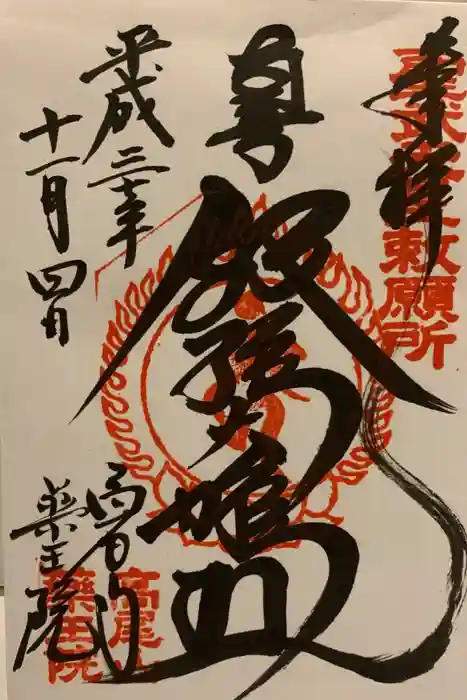 奉拝
聖武天皇敕願所
飯縄大権現
平成三十年
十一月四日
高尾山
薬王院
高尾山
薬王院